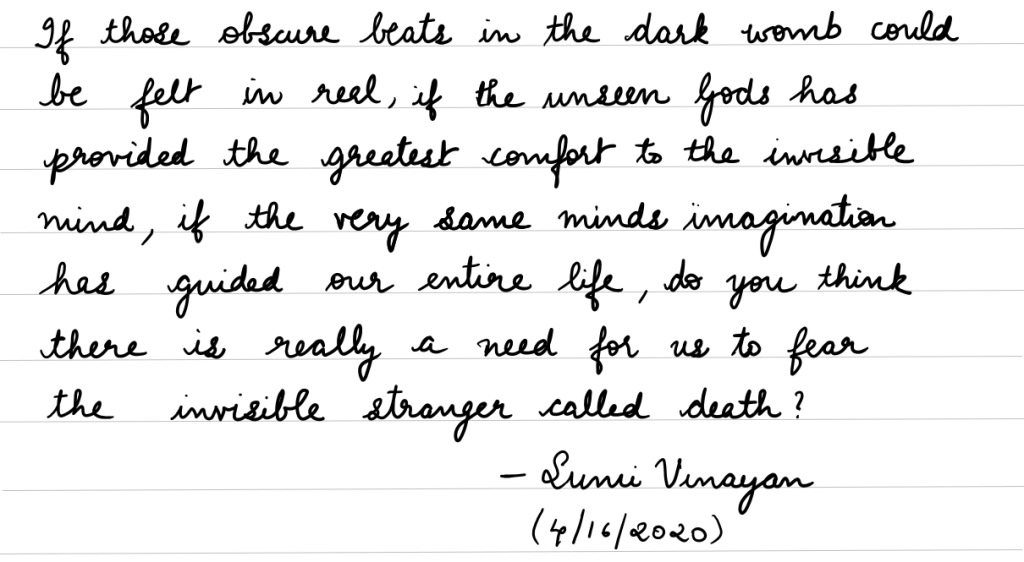 If those obscure beats in the dark womb could
be felt in real, if the unseen Gods has
provided the greatest comfort to the invisible
mind, if the very same minds imagination
has guided our entire life, do you think
there is really a need for us to fear
the invisible stranger called death?
- Sumi Vinayan
(4/16/2020)